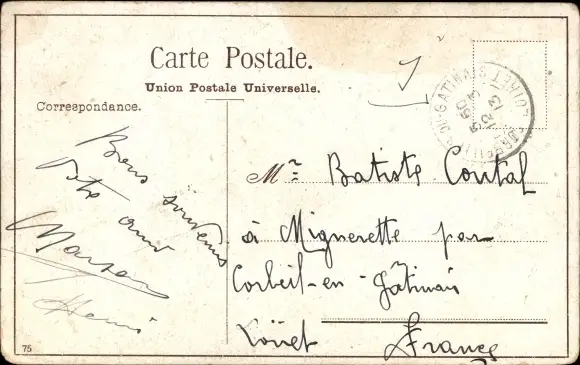 Carte Postale.
Union Postale Universelle.
Correspondance.
Bons souvenirs
Votre ami
Henri
Mr Batiste Coutal
à Mignerette par
Corbeil-en-Gâtinais
Loiret France
GATINAIS
LOIRET
75